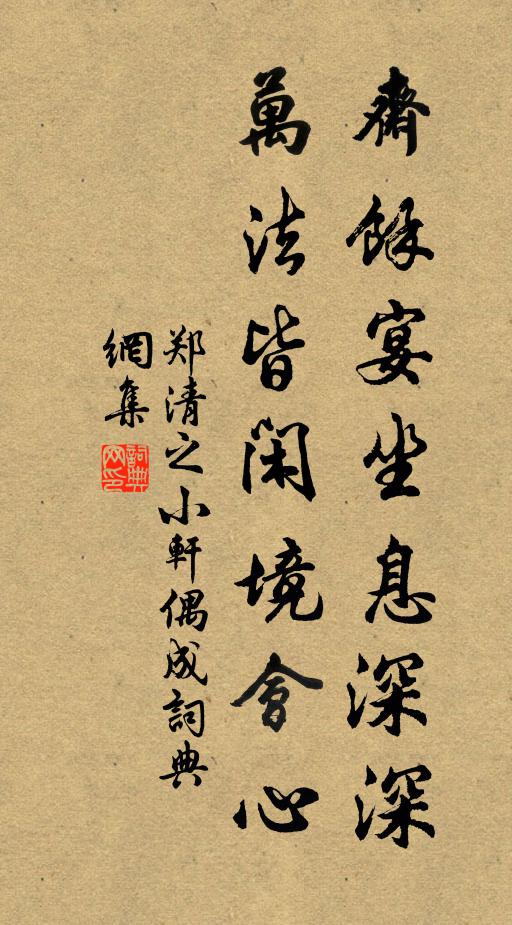 齋餘宴坐息深深
萬法皆閑境會心
郑清之小軒偶成詞典
網集
詞典
网印